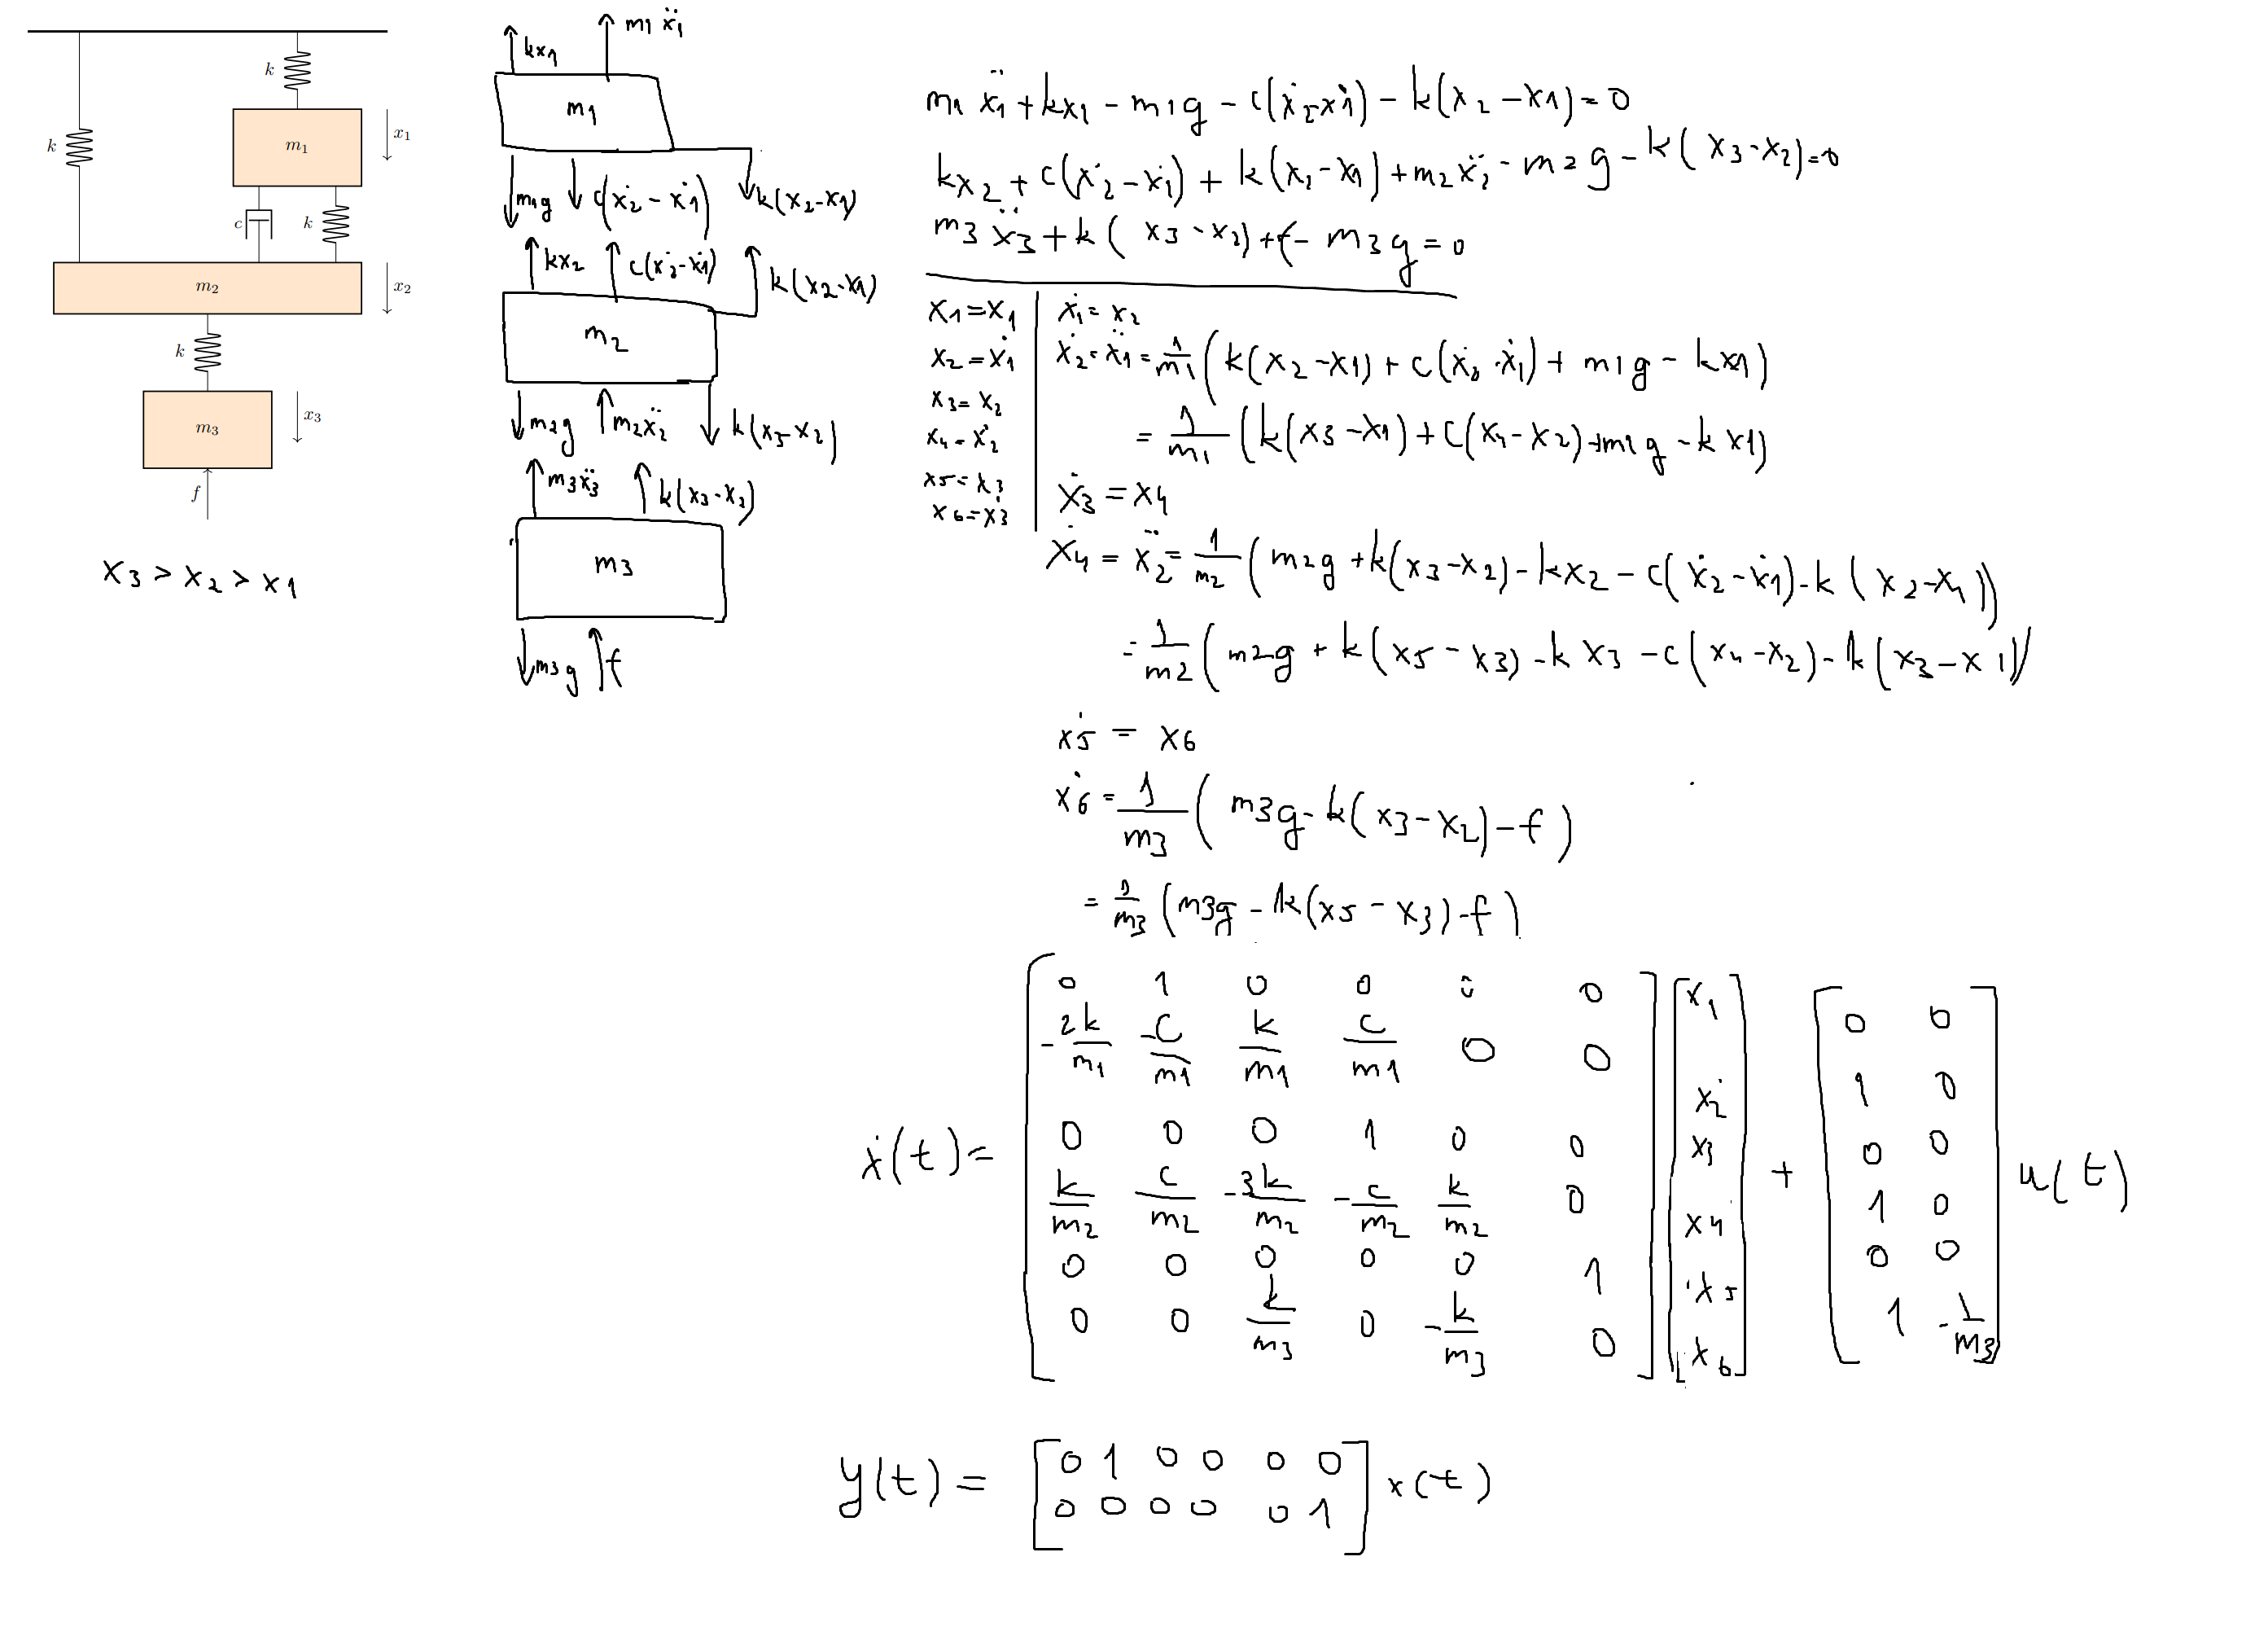 k
k
m₁
x₁
c
k
m₂
x₂
k
m₃
x₃
f
x₃ > x₂ > x₁
kx₁
m₁ẍ₁
m₁
m₁g
c(ẋ₂ - ẋ₁)
k(x₂-x₁)
kx₂
c(ẋ₂-ẋ₁)
k(x₂-x₁)
m₂
m₂g
m₂ẍ₂
k(x₃-x₂)
m₃ẍ₃
k(x₃-x₂)
m₃
m₃g
f
m₁ẍ₁ + kx₁ - m₁g - c(ẋ₂-ẋ₁) - k(x₂-x₁) = 0
kx₂ + c(ẋ₂-ẋ₁) + k(x₂-x₁) + m₂ẍ₂ - m₂g - k(x₃-x₂) = 0
m₃ẍ₃ + k(x₃-x₂) + f - m₃g = 0
x₁ = x₁
x₂ = ẋ₁
x₃ = x₂
x₄ = ẋ₂
x₅ = x₃
x₆ = ẋ₃
ẋ₁ = x₂
ẋ₂ = ẍ₁ = 1/m₁ (k(x₂-x₁) + c(ẋ₂-ẋ₁) + m₁g - kx₁)
= 1/m₁ (k(x₃-x₁) + c(x₄-x₂) + m₁g - kx₁)
ẋ₃ = x₄
ẋ₄ = ẍ₂ = 1/m₂ (m₂g + k(x₃-x₂) - kx₂ - c(ẋ₂-ẋ₁) - k(x₂-x₁))
= 1/m₂ (m₂g + k(x₅-x₃) - kx₃ - c(x₄-x₂) - k(x₃-x₁))
ẋ₅ = x₆
ẋ₆ = 1/m₃ (m₃g - k(x₃-x₂) - f)
= 1/m₃ (m₃g - k(x₅-x₃) - f)
ẋ(t) =
0 1 0 0 0 0
-2k/m₁ -c/m₁ k/m₁ c/m₁ 0 0
0 0 0 1 0 0
k/m₂ c/m₂ -3k/m₂ -c/m₂ k/m₂ 0
0 0 0 0 0 1
0 0 k/m₃ 0 -k/m₃ 0
x₁
x₂
x₃
x₄
x₅
x₆
+
0 0
1 0
0 0
1 0
0 0
1 -1/m₃
u(t)
y(t) =
0 1 0 0 0 0
0 0 0 0 0 1
x(t)